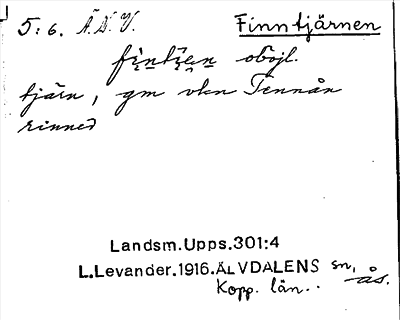 5:6. Ä.D.V. Finntjärnen
oböjl.
tjärn, gm vlken Tennån
rinner
Landsm.Upps.301:4
L.Levander.1916.ÄLVDALENS sn,
Kopp. län.. ås.